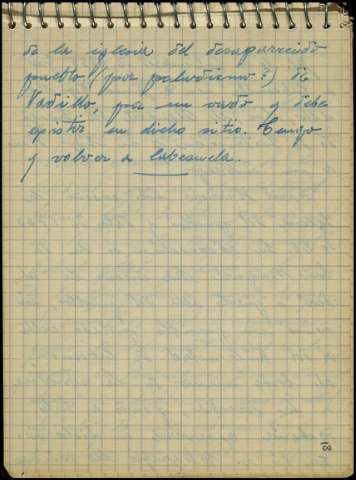 de la iglesia del desaparecido
pueblo (por paludismo?) de
Vadillo, por un vado q debe
existir en dicho sitio. Tengo
q volver a Cabezuela.
18